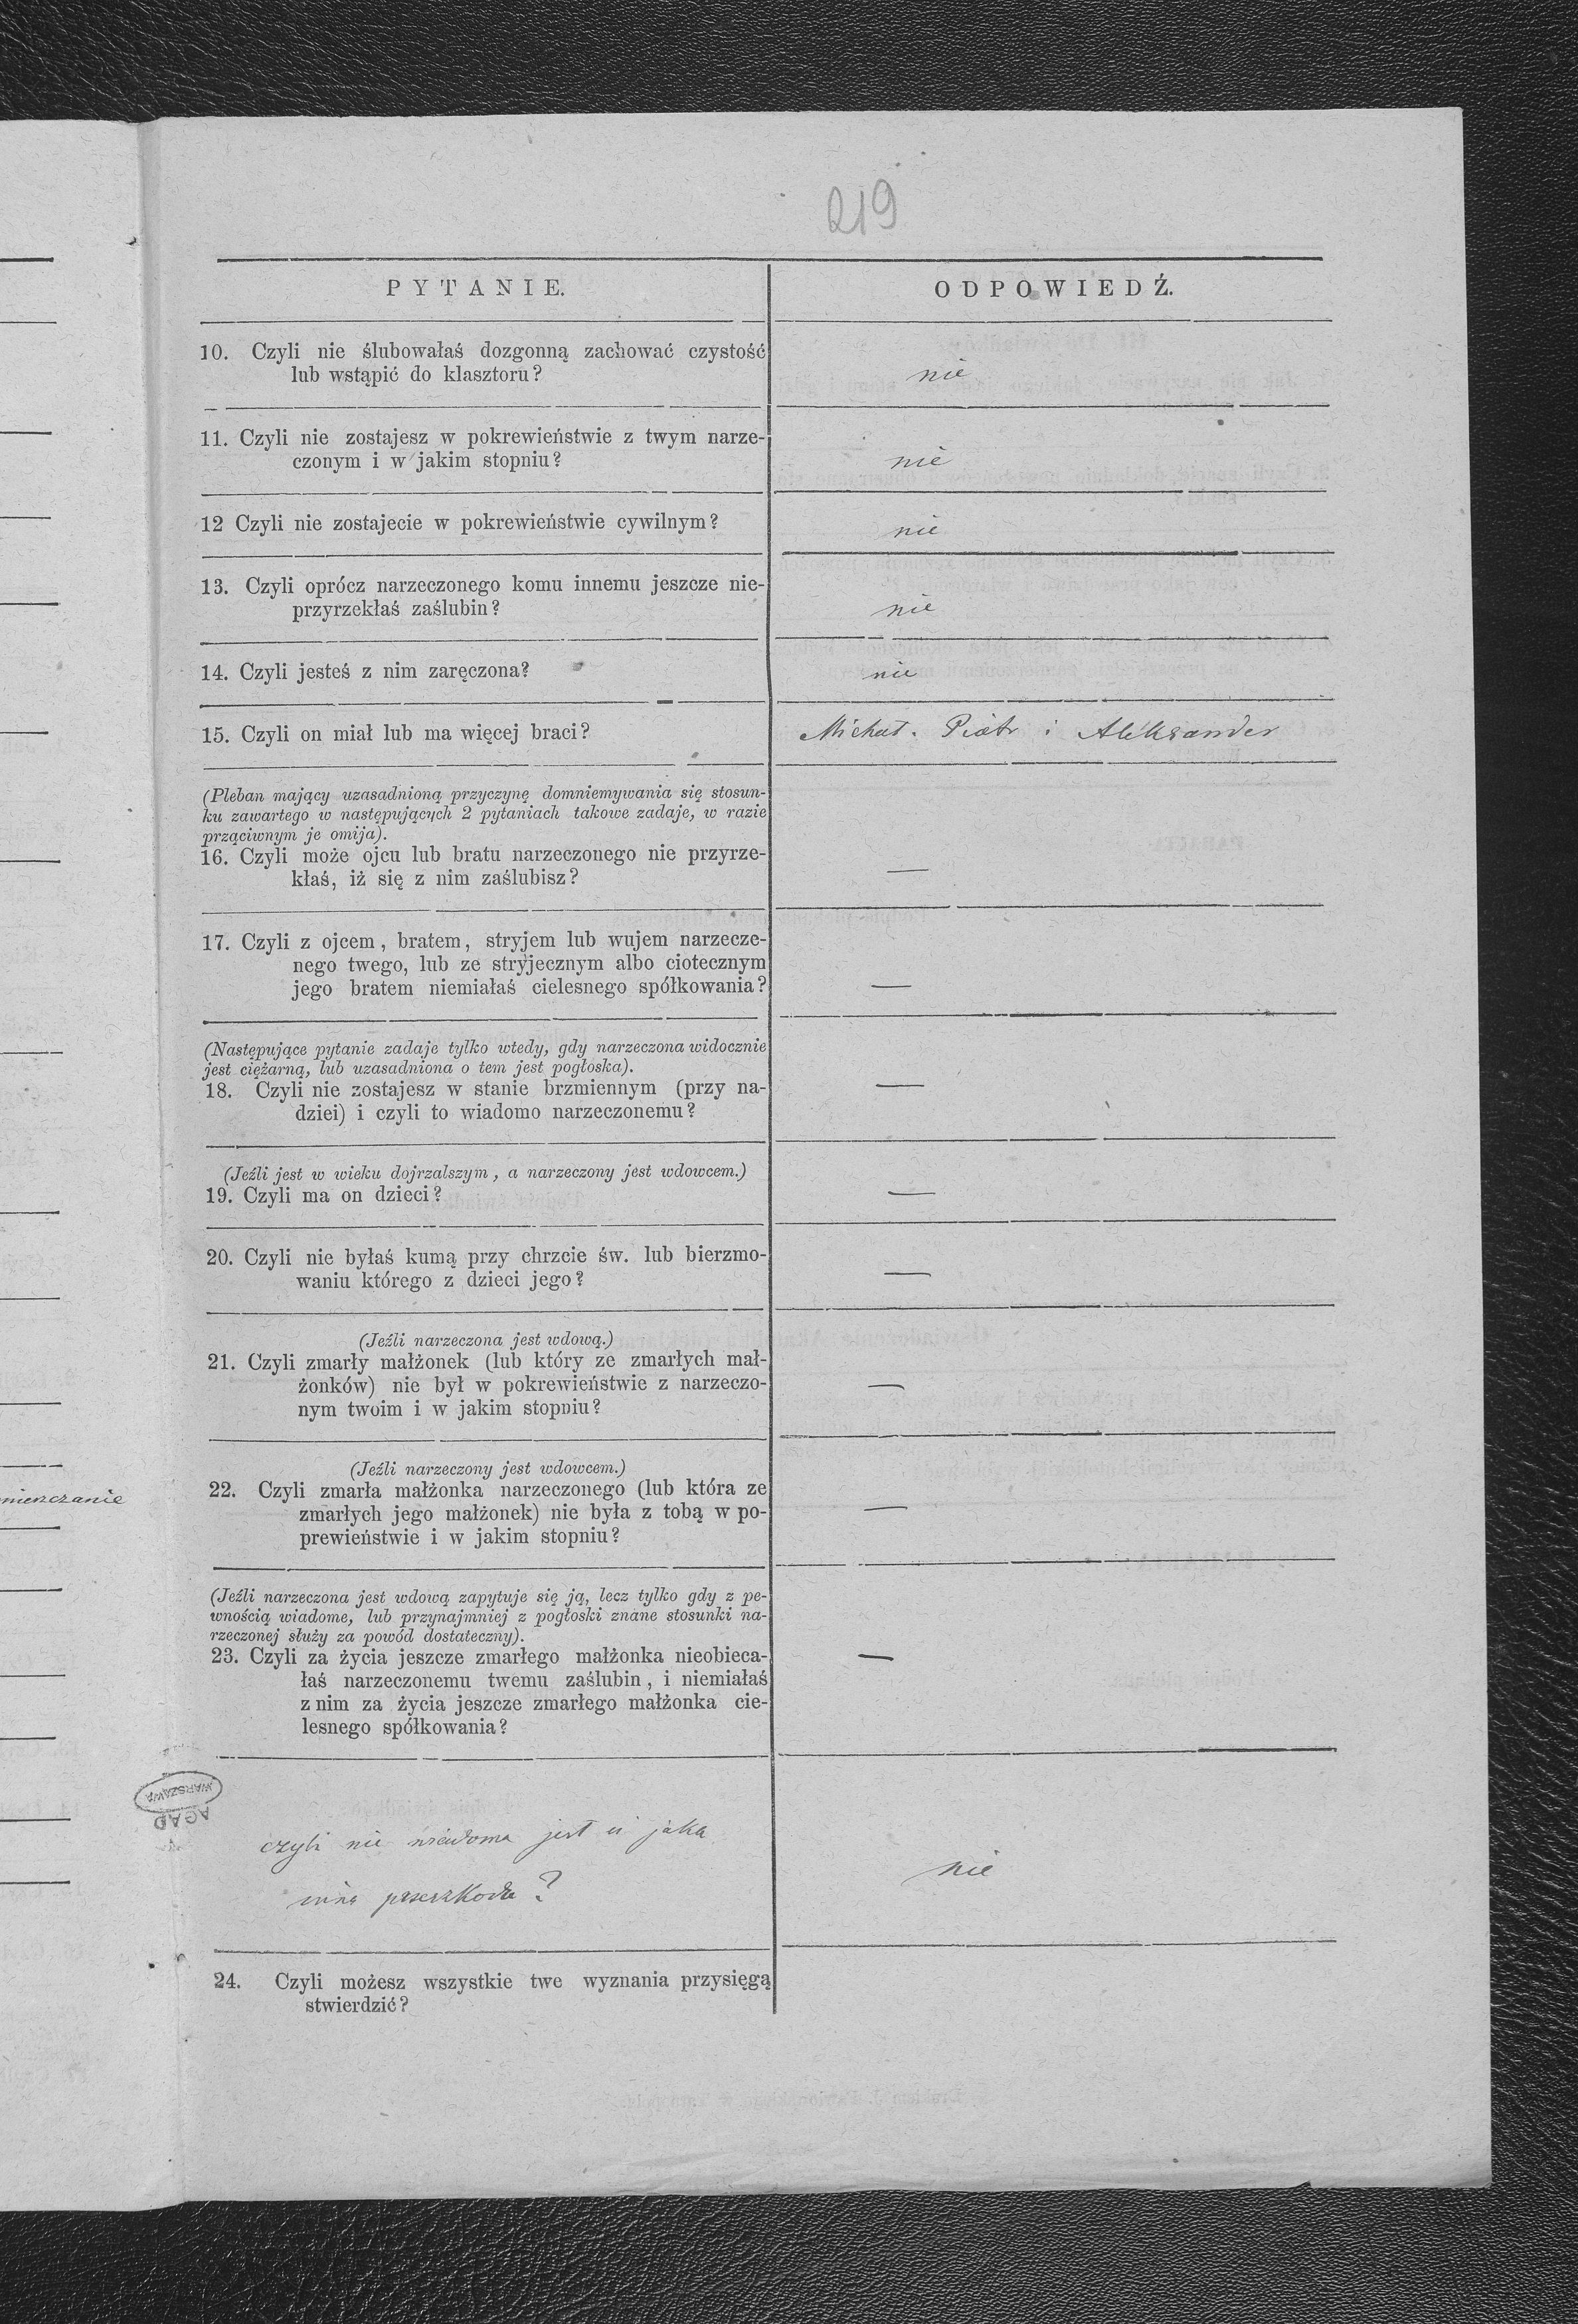 219
PYTANIE.
ODPOWIEDŹ.
10. Czyli nie ślubowałaś dozgonną zachować czystość
lub wstąpić do klasztoru?
nie
11. Czyli nie zostajesz w pokrewieństwie z twym narze-
czonym i w jakim stopniu?
nie
12 Czyli nie zostajecie w pokrewieństwie cywilnym?
nie
13. Czyli oprócz narzeczonego komu innemu jeszcze nie-
przyrzekłaś zaślubin?
nie
14. Czyli jesteś z nim zaręczona?
nie
15. Czyli on miał lub ma więcej braci?
Michał. Piotr i Aleksander
(Pleban mający uzasadnioną przyczynę domniemywania się stosun-
ku zawartego w następujących 2 pytaniach takowe zadaje, w razie
prząciwnym je omija).
16. Czyli może ojcu lub bratu narzeczonego nie przyrze-
kłaś, iż się z nim zaślubisz?
—
17. Czyli z ojcem, bratem, stryjem lub wujem narzecze-
nego twego, lub ze stryjecznym albo ciotecznym
jego bratem niemiałaś cielesnego spółkowania?
—
(Następujące pytanie zadaje tylko wtedy, gdy narzeczona widocznie
jest ciężarną, lub uzasadniona o tem jest pogłoska).
18. Czyli nie zostajesz w stanie brzmiennym (przy na-
dziei) i czyli to wiadomo narzeczonemu?
—
(Jeźli jest w wieku dojrzalszym, a narzeczony jest wdowcem.)
19. Czyli ma on dzieci?
—
20. Czyli nie byłaś kumą przy chrzcie św. lub bierzmo-
waniu którego z dzieci jego?
—
(Jeźli narzeczona jest wdową.)
21. Czyli zmarły małżonek (lub który ze zmarłych mał-
żonków) nie był w pokrewieństwie z narzeczo-
nym twoim i w jakim stopniu?
—
(Jeźli narzeczony jest wdowcem.)
22. Czyli zmarła małżonka narzeczonego (lub która ze
zmarłych jego małżonek) nie była z tobą w po-
prewieństwie i w jakim stopniu?
—
mieszczanie
(Jeźli narzeczona jest wdową zapytuje się ją, lecz tylko gdy z pe-
wnością wiadome, lub przynajmniej z pogłoski znane stosunki na-
rzeczonej służy za powód dostateczny).
23. Czyli za życia jeszcze zmarłego małżonka nieobieca-
łaś narzeczonemu twemu zaślubin, i niemiałaś
z nim za życia jeszcze zmarłego małżonka cie-
lesnego spółkowania?
—
WARSZAWA
AGAD
czyli nie wiadoma jest ci jaka
inna przeszkoda?
nie
24. Czyli możesz wszystkie twe wyznania przysięgą
stwierdzić?